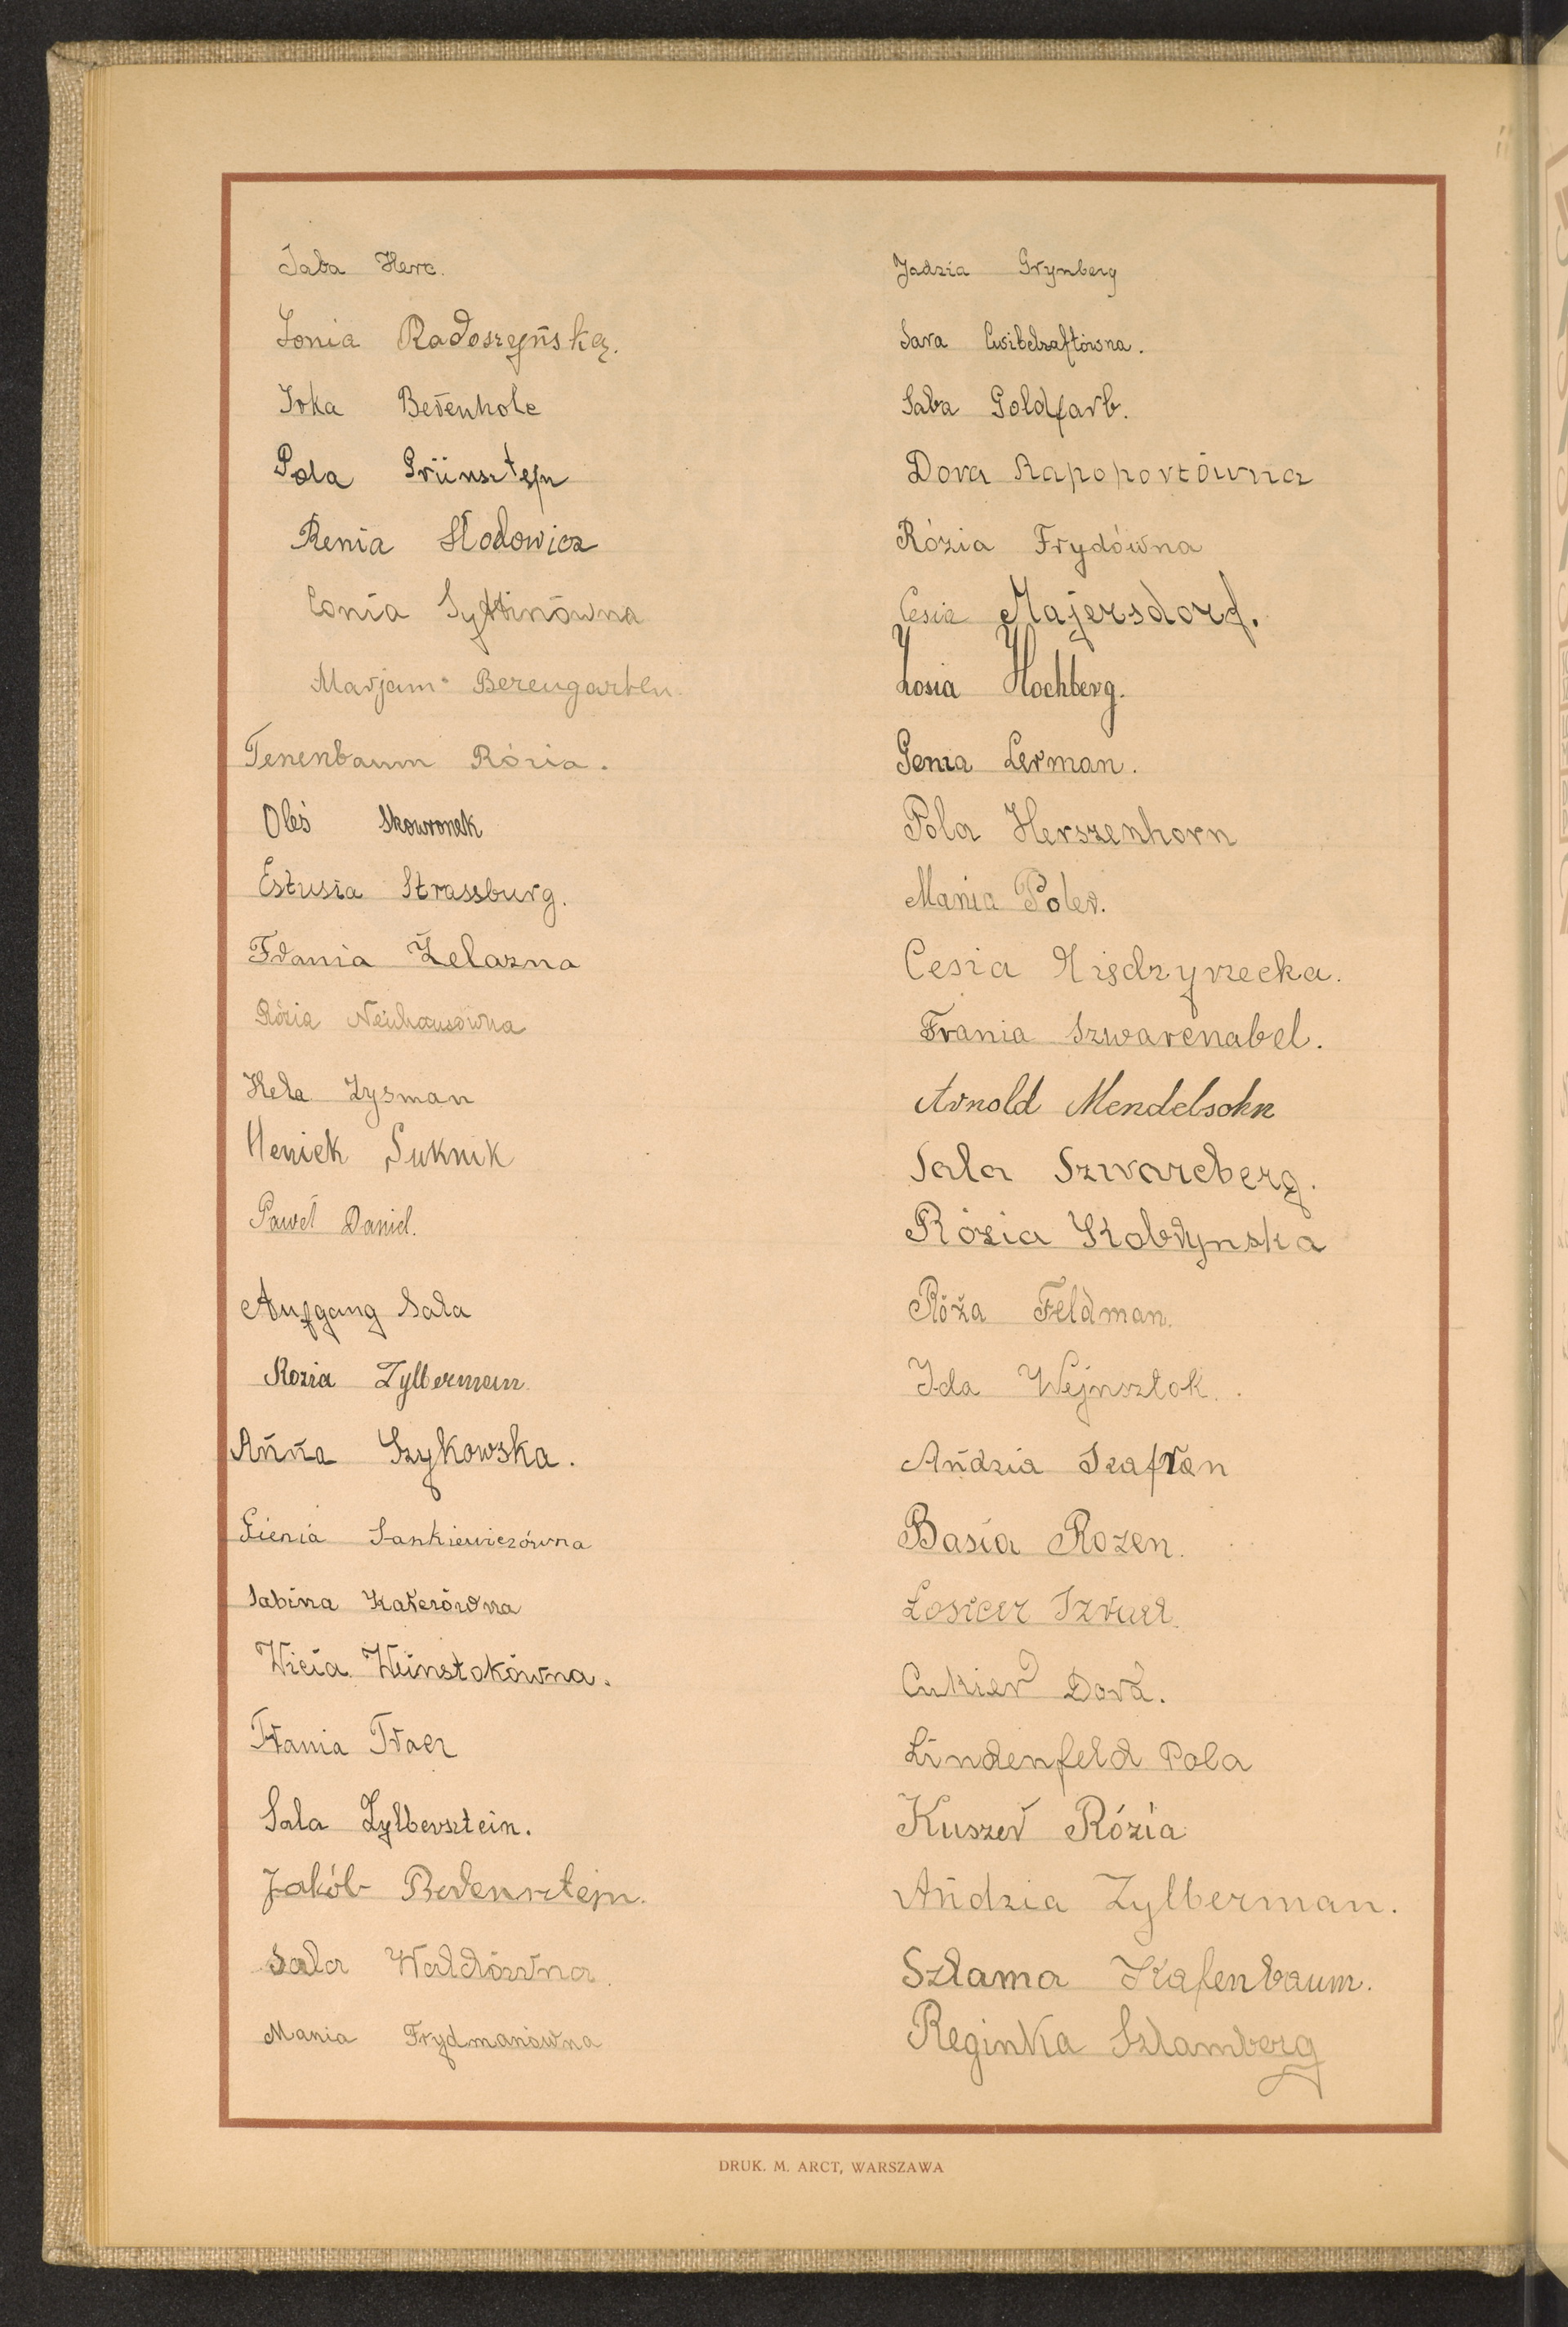 Saba Herc.
Sonia Radoszyńską.
Irka Berenholc
Pola Grünsztejn
Renia Słodowicz
Conia
Marjam Berengarten.
Tenenbaum Rózia.
Oleś Skowronek
Estusia Strassburg.
Frania Żelazna
Rózia Neuhausówna
Hela Zysman
Heniek Suknik
Paweł Daniel.
Aufgang Sala
Rozia Zylberman
Anna Szykowska.
Gienia Sankiewiczówna
Sabina
Wicia Weinstokówna.
Frania Tracz
Sala Zylbersztein.
Jakób
Sala Waldówna.
Mania Frydmanówna
Jadzia Grynberg
Sara Cwibelzaftówna.
Saba Goldfarb.
Dora Rapoportówna
Rózia Frydówna
Cesia Majersdorf.
Zosia Hochberg.
Genia Lerman.
Pola Herszenhorn
Mania Poler.
Cesia Międzyrzecka.
Frania Szwarcnabel.
Arnold Mendelsohn
Sala Szwarcberg.
Rózia Kobryńska
Róża Feldman.
Ida Wejnsztok.
Andzia Szafran
Basia Rozen.
Łosicer Izrael
Cukier Dora.
Lindenfeld Pola
Kuszer Rózia
Andzia Zylberman.
Szlama Kafenbaum.
Reginka Szlamberg
DRUK. M. ARCT, WARSZAWA